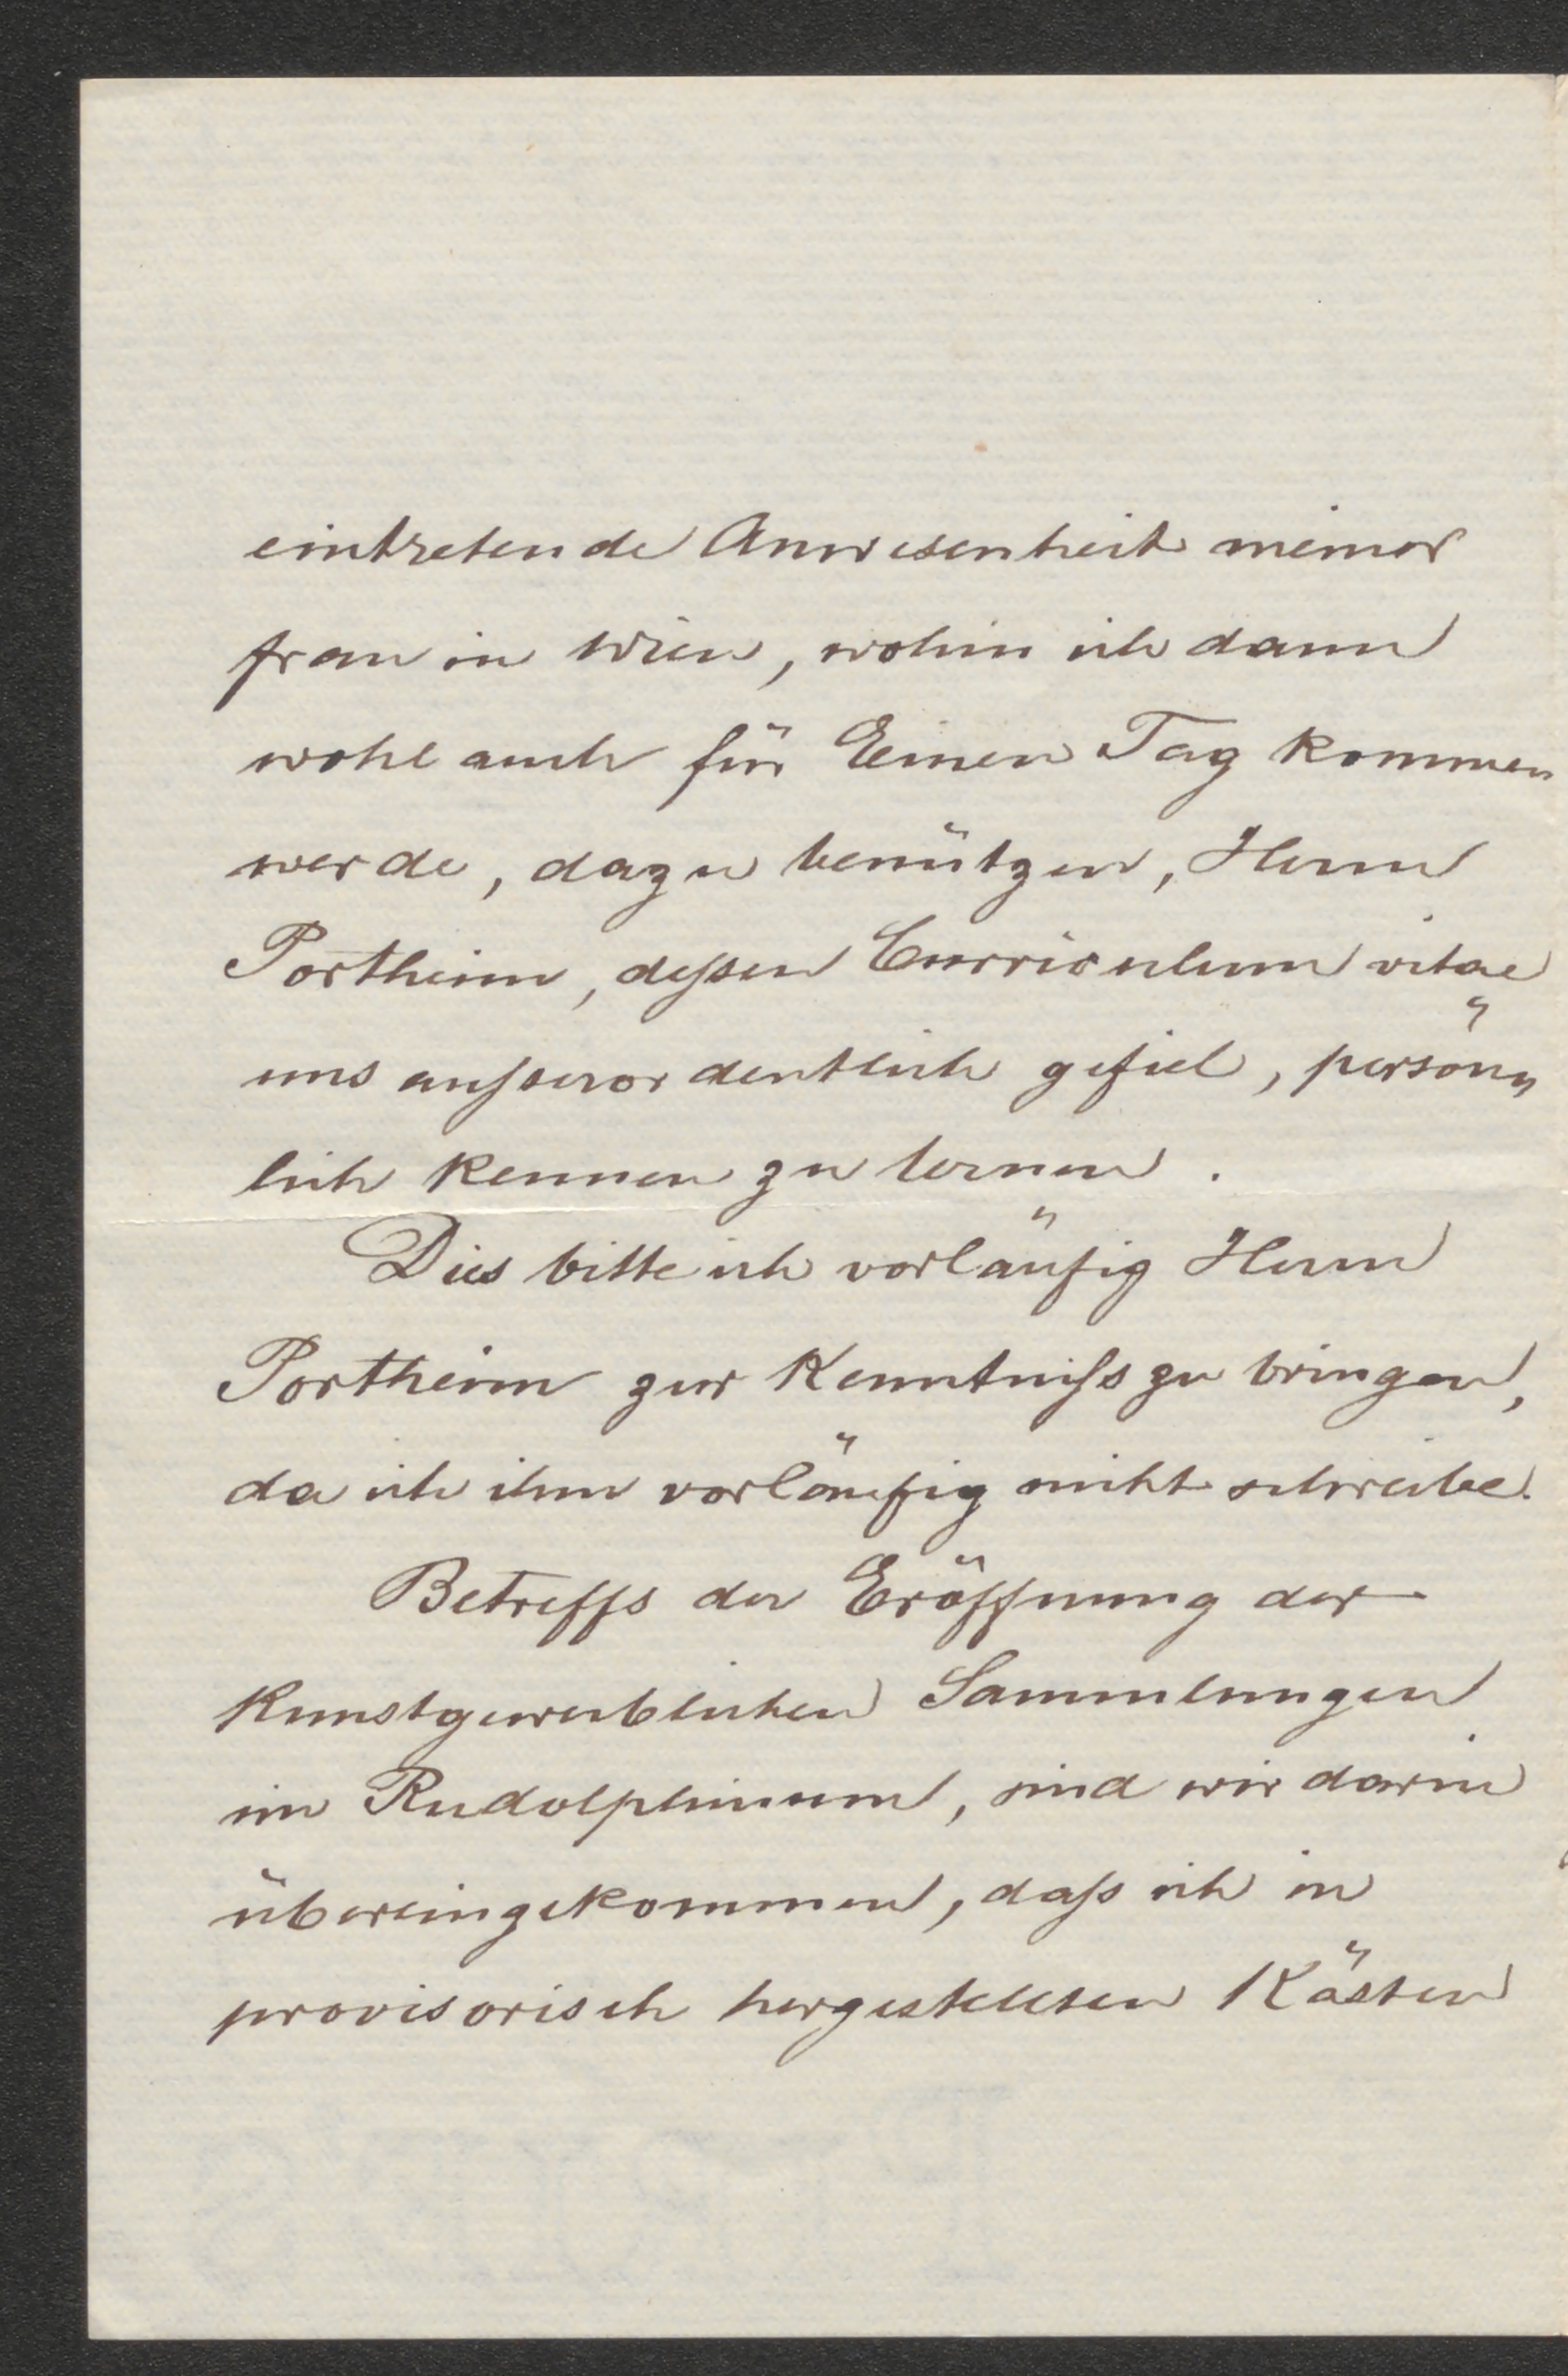 eintretende Anwesenheit meiner
Frau in Wien, wohin ich dann
wohl auch für Einen Tag kommen
werde, dazu benützen, Herrn
Portheim, dessen Curriculum vitae
uns ausserordentlich gefiel, persön„
lich kennen zu lernen.
Dies bitte ich vorläufig Herrn
Portheim zur Kenntniss zu bringen,
da ich ihm vorläufig nicht schreibe.
Betreffs der Eröffnung der
kunstgewerblichen Sammlungen
im Rudolphinum, sind wir darin
übereingekommen, dass ich in
provisorisch hergestellten Kästen